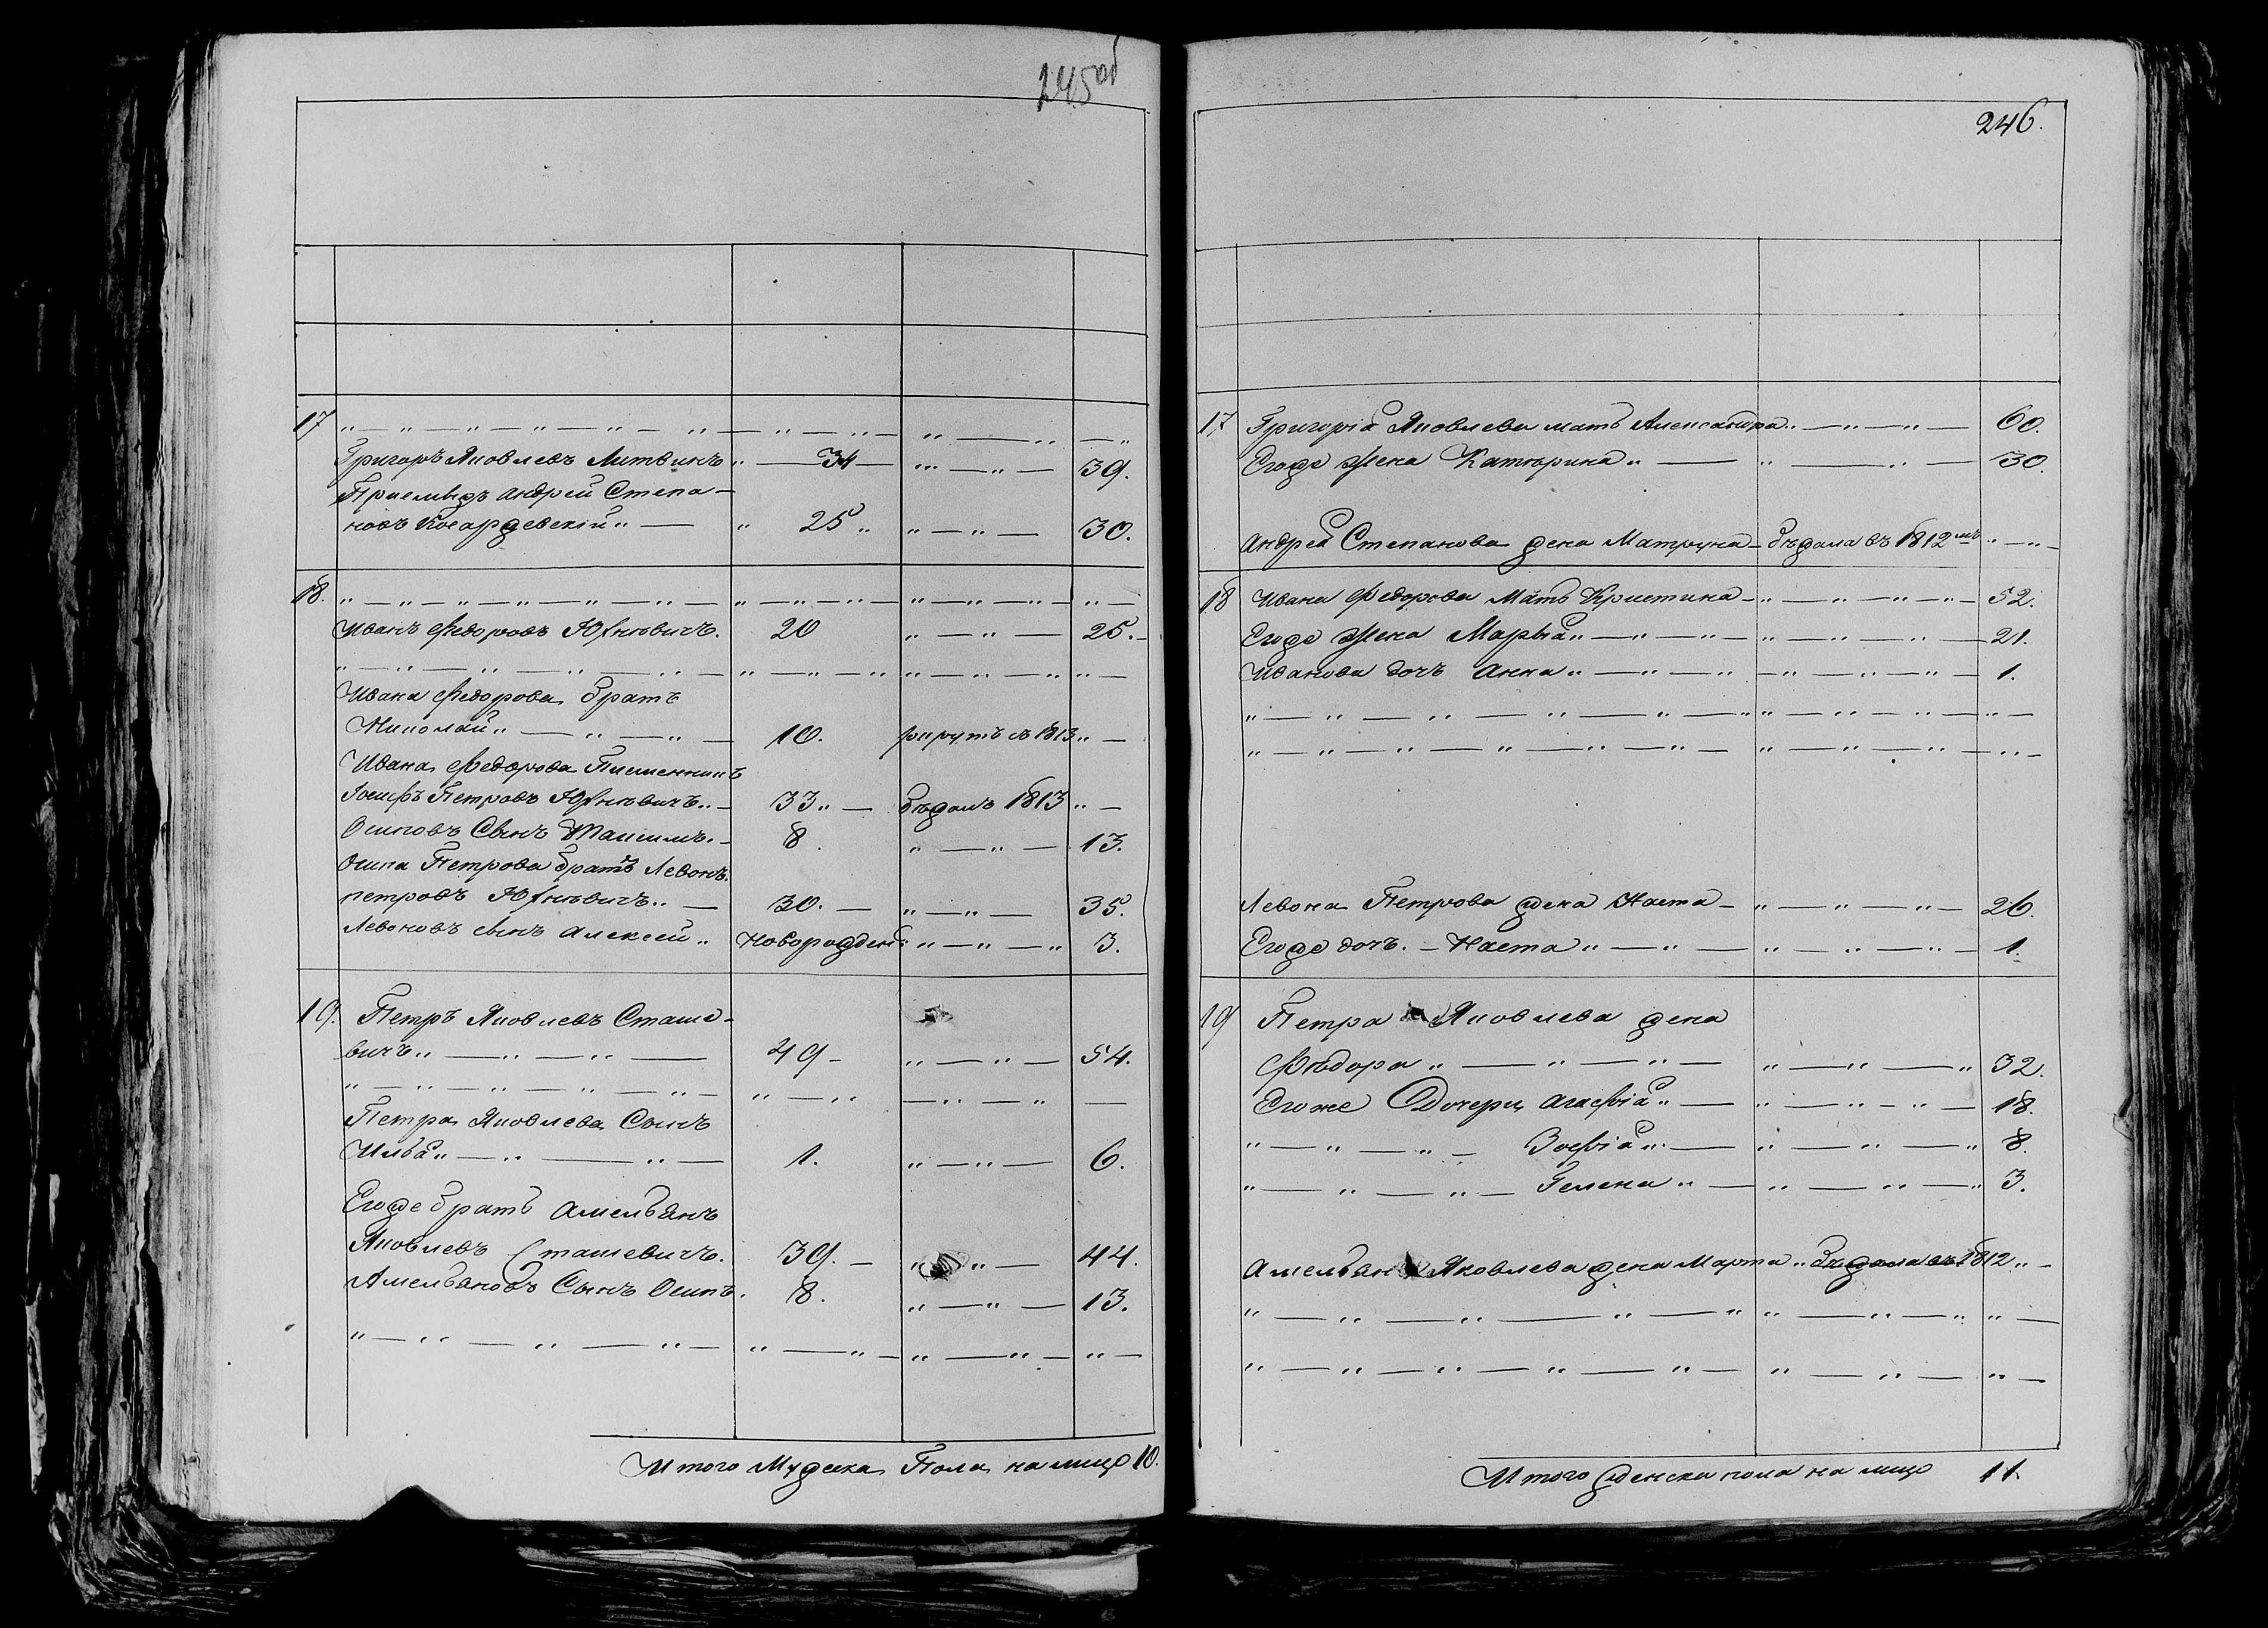 245об
17
Григоръ Яковлевъ Литвинъ 34 39.
Приемышъ Андрей Степа-
новъ 25 30.
18.
Иванъ Федоровъ Юхневичъ. 20 25.
Ивана Федорова братъ
Николай 10. рекрутъ въ 1813
Ивана Федорова Племенникъ
Іосифъ Петровъ Юхневичъ 33 бѣжалъ 1813
Осиповъ Сынъ Максимъ. 8 13.
Осипа Петрова братъ Левонъ
петровъ Юхневичъ 30. 35.
Левоновъ сынъ Алексей Новорожден 3.
19. Петръ Яковлевъ Сташе-
вичъ 49 54.
Петра Яковлева Сынъ
Илья 1. 6.
Егоже братъ Амельянъ
Яковлевъ Сташевичъ. 39. 44.
Амельяновъ Сынъ Осипъ. 8. 13.
Итого Мужеска Пола на лицо 10.
246.
17 Григорія Яковлева мать Александра 60.
Егоже Жена Катерина 30.
Андрея Степанова жена Матруна бѣжала въ 1812мъ
18 Ивана Федорова Мать Кристина 52.
Егоже Жена Марья 21.
Иванова дочъ Анна 1.
Левона Петрова жена Наста 26.
Егоже дочъ. Наста 1.
19 Петра Яковлева жена
Фѣдора 32.
Егоже Дочери Агафія 18.
Зофія 8.
Гелена 3.
Амельяна Яковлева жена Марта бѣжала въ 1812
Итого женска пола на лицо 11.